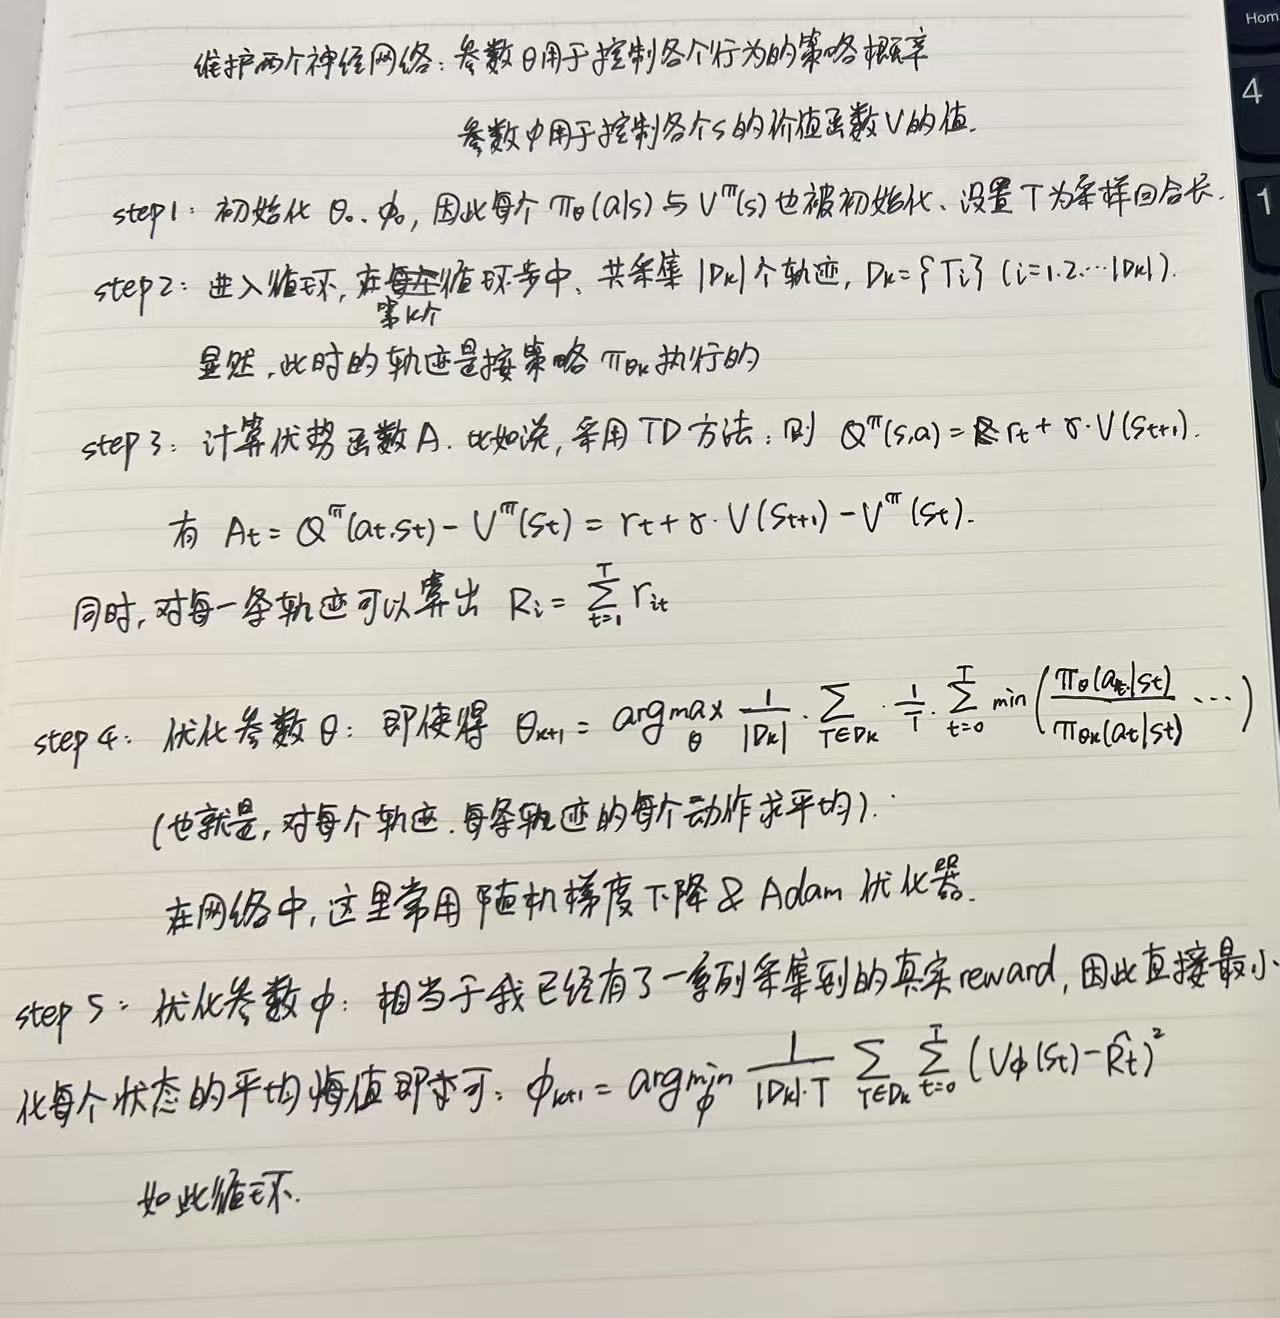 维护两个神经网络：参数θ用于控制各个行为的策略概率
参数φ用于控制各个s的价值函数V的值.
step1: 初始化 θ₀. φ₀, 因此每个 πθ(a|s) 与 V^π(s) 也被初始化、设置 T 为采样回合长.
step2: 进入循环, 在第k个循环步中、共采集 |Dk| 个轨迹, Dk={Ti} (i=1.2.…|Dk|).
显然, 此时的轨迹是按策略 πθk 执行的
step 3: 计算优势函数A. 比如说, 采用TD方法: 则 Q^π(s,a) = rt + γ·V(St+1).
有 At = Q^π(at.st) - V^π(St) = rt + γ·V(St+1) - V^π(St).
同时, 对每一条轨迹可以算出 Ri = Σ_{t=1}^{T} rit
step 4: 优化参数θ: 即使得 θk+1 = argmax_θ 1/|Dk| · Σ_{T∈Dk} · 1/T · Σ_{t=0}^{T} min(πθ(at|st)/πθk(at|st) …)
(也就是, 对每个轨迹.每条轨迹的每个动作求平均).
在网络中, 这里常用随机梯度下降 & Adam 优化器.
step 5: 优化参数φ: 相当于我已经有了一系列采集到的真实reward, 因此直接最小
化每个状态的平均值即可: φk+1 = argmin_φ 1/(|Dk|·T) Σ_{T∈Dk} Σ_{t=0}^{T} (Vφ(St) - R̂t)²
如此循环.
Hom
4
1